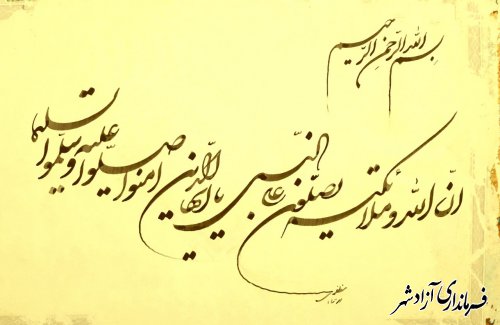 بسم الله الرحمن الرحیم
ان الله و ملائکته یصلون علی النبی یا ایها الذین آمنوا صلوا علیه و سلموا تسلیما
فرمانداری آزادشهر